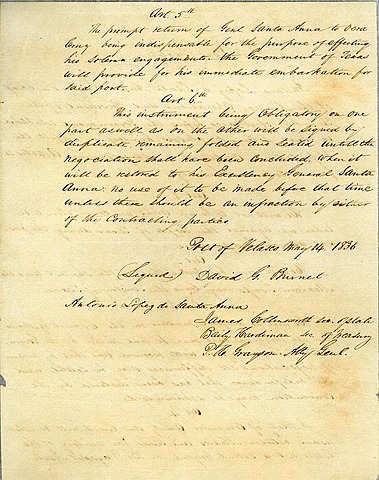 Art 5th
The prompt return of Genl Santa Anna to Vera
Cruz being indispensable for the purpose of effecting
his solemn engagements. the Government of Texas
will provide for his immediate embarkation for
said port.
Art 6th
This instrument being Obligatory on one
part as well as on the other will be signed by
duplicate remaining folded and sealed untill the
negociation shall have been concluded when it
will be restored to his Excellency General Santa
Anna. no use of it to be made before that time
unless there should be an infraction by either
of the Contracting parties
Port of Velasco May 14. 1836
(Signed) David G. Burnet
Antonio Lopez de Santa Anna
James Collinsworth Sec. of State
Baily Hardiman Sec. of Treasury
P. H. Grayson. Atty Genl.